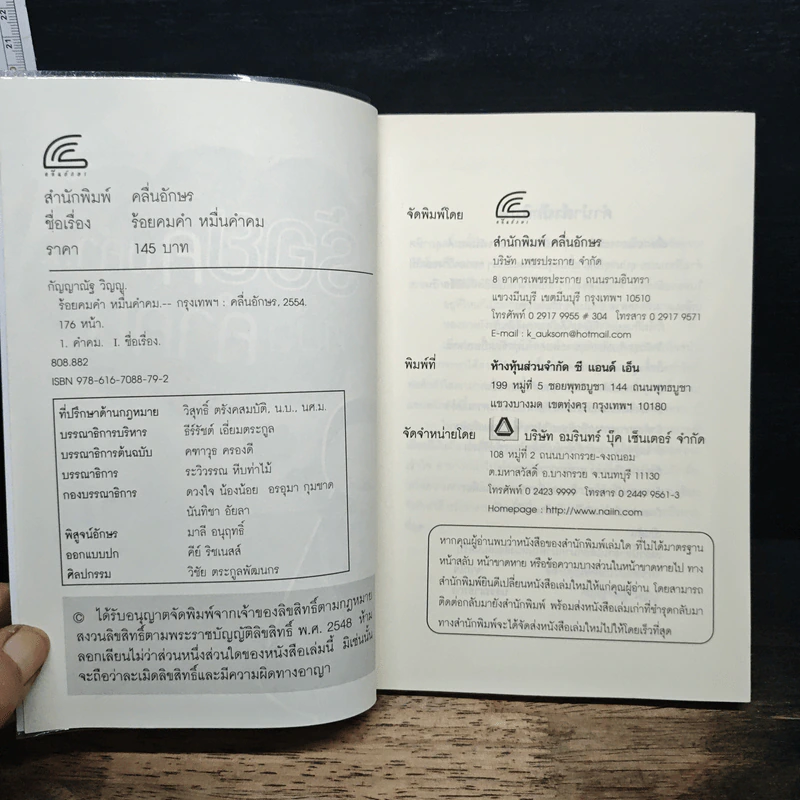 คลื่นอักษร
สำนักพิมพ์ คลื่นอักษร
ชื่อเรื่อง ร้อยคมคำ หมื่นคำคม
ราคา 145 บาท
กัญญาณัฐ วิญญู.
ร้อยคมคำ หมื่นคำคม.-- กรุงเทพฯ : คลื่นอักษร, 2554.
176 หน้า.
1. คำคม. I. ชื่อเรื่อง.
808.882
ISBN 978-616-7088-79-2
ที่ปรึกษาด้านกฎหมาย วิสุทธิ์ ตรังคสมบัติ, น.บ., นศ.ม.
บรรณาธิการบริหาร ธีร์รัชต์ เอี่ยมตระกูล
บรรณาธิการต้นฉบับ คฑาวุธ ครองดี
บรรณาธิการ ระวิวรรณ หีบท่าไม้
กองบรรณาธิการ ดวงใจ น้องน้อย อรอุมา กุมชาด
นันทิชา อัยลา
พิสูจน์อักษร มาลี อนุฤทธิ์
ออกแบบปก คีย์ ริชเนสส์
ศิลปกรรม วิชัย ตระกูลพัฒนกร
© ได้รับอนุญาตจัดพิมพ์จากเจ้าของลิขสิทธิ์ตามกฎหมาย
สงวนลิขสิทธิ์ตามพระราชบัญญัติลิขสิทธิ์ พ.ศ. 2548 ห้าม
ลอกเลียนไม่ว่าส่วนหนึ่งส่วนใดของหนังสือเล่มนี้ มิเช่นนั้น
จะถือว่าละเมิดลิขสิทธิ์และมีความผิดทางอาญา
จัดพิมพ์โดย
คลื่นอักษร
สำนักพิมพ์ คลื่นอักษร
บริษัท เพชรประกาย จำกัด
8 อาคารเพชรประกาย ถนนรามอินทรา
แขวงมีนบุรี เขตมีนบุรี กรุงเทพฯ 10510
โทรศัพท์ 0 2917 9955 # 304 โทรสาร 0 2917 9571
E-mail : k_auksorn@hotmail.com
พิมพ์ที่ ห้างหุ้นส่วนจำกัด ซี แอนด์ เอ็น
199 หมู่ที่ 5 ซอยพุทธบูชา 144 ถนนพุทธบูชา
แขวงบางมด เขตทุ่งครุ กรุงเทพฯ 10180
จัดจำหน่ายโดย บริษัท อมรินทร์ บุ๊ค เซ็นเตอร์ จำกัด
108 หมู่ที่ 2 ถนนบางกรวย-จงถนอม
ต.มหาสวัสดิ์ อ.บางกรวย จ.นนทบุรี 11130
โทรศัพท์ 0 2423 9999 โทรสาร 0 2449 9561-3
Homepage : http://www.naiin.com
หากคุณผู้อ่านพบว่าหนังสือของสำนักพิมพ์เล่มใด ที่ไม่ได้มาตรฐาน
หน้าสลับ หน้าขาดหาย หรือข้อความบางส่วนในหน้าขาดหายไป ทาง
สำนักพิมพ์ยินดีเปลี่ยนหนังสือเล่มใหม่ให้แก่คุณผู้อ่าน โดยสามารถ
ติดต่อกลับมายังสำนักพิมพ์ พร้อมส่งหนังสือเล่มเก่าที่ชำรุดกลับมา
ทางสำนักพิมพ์จะได้จัดส่งหนังสือเล่มใหม่ไปให้โดยเร็วที่สุด